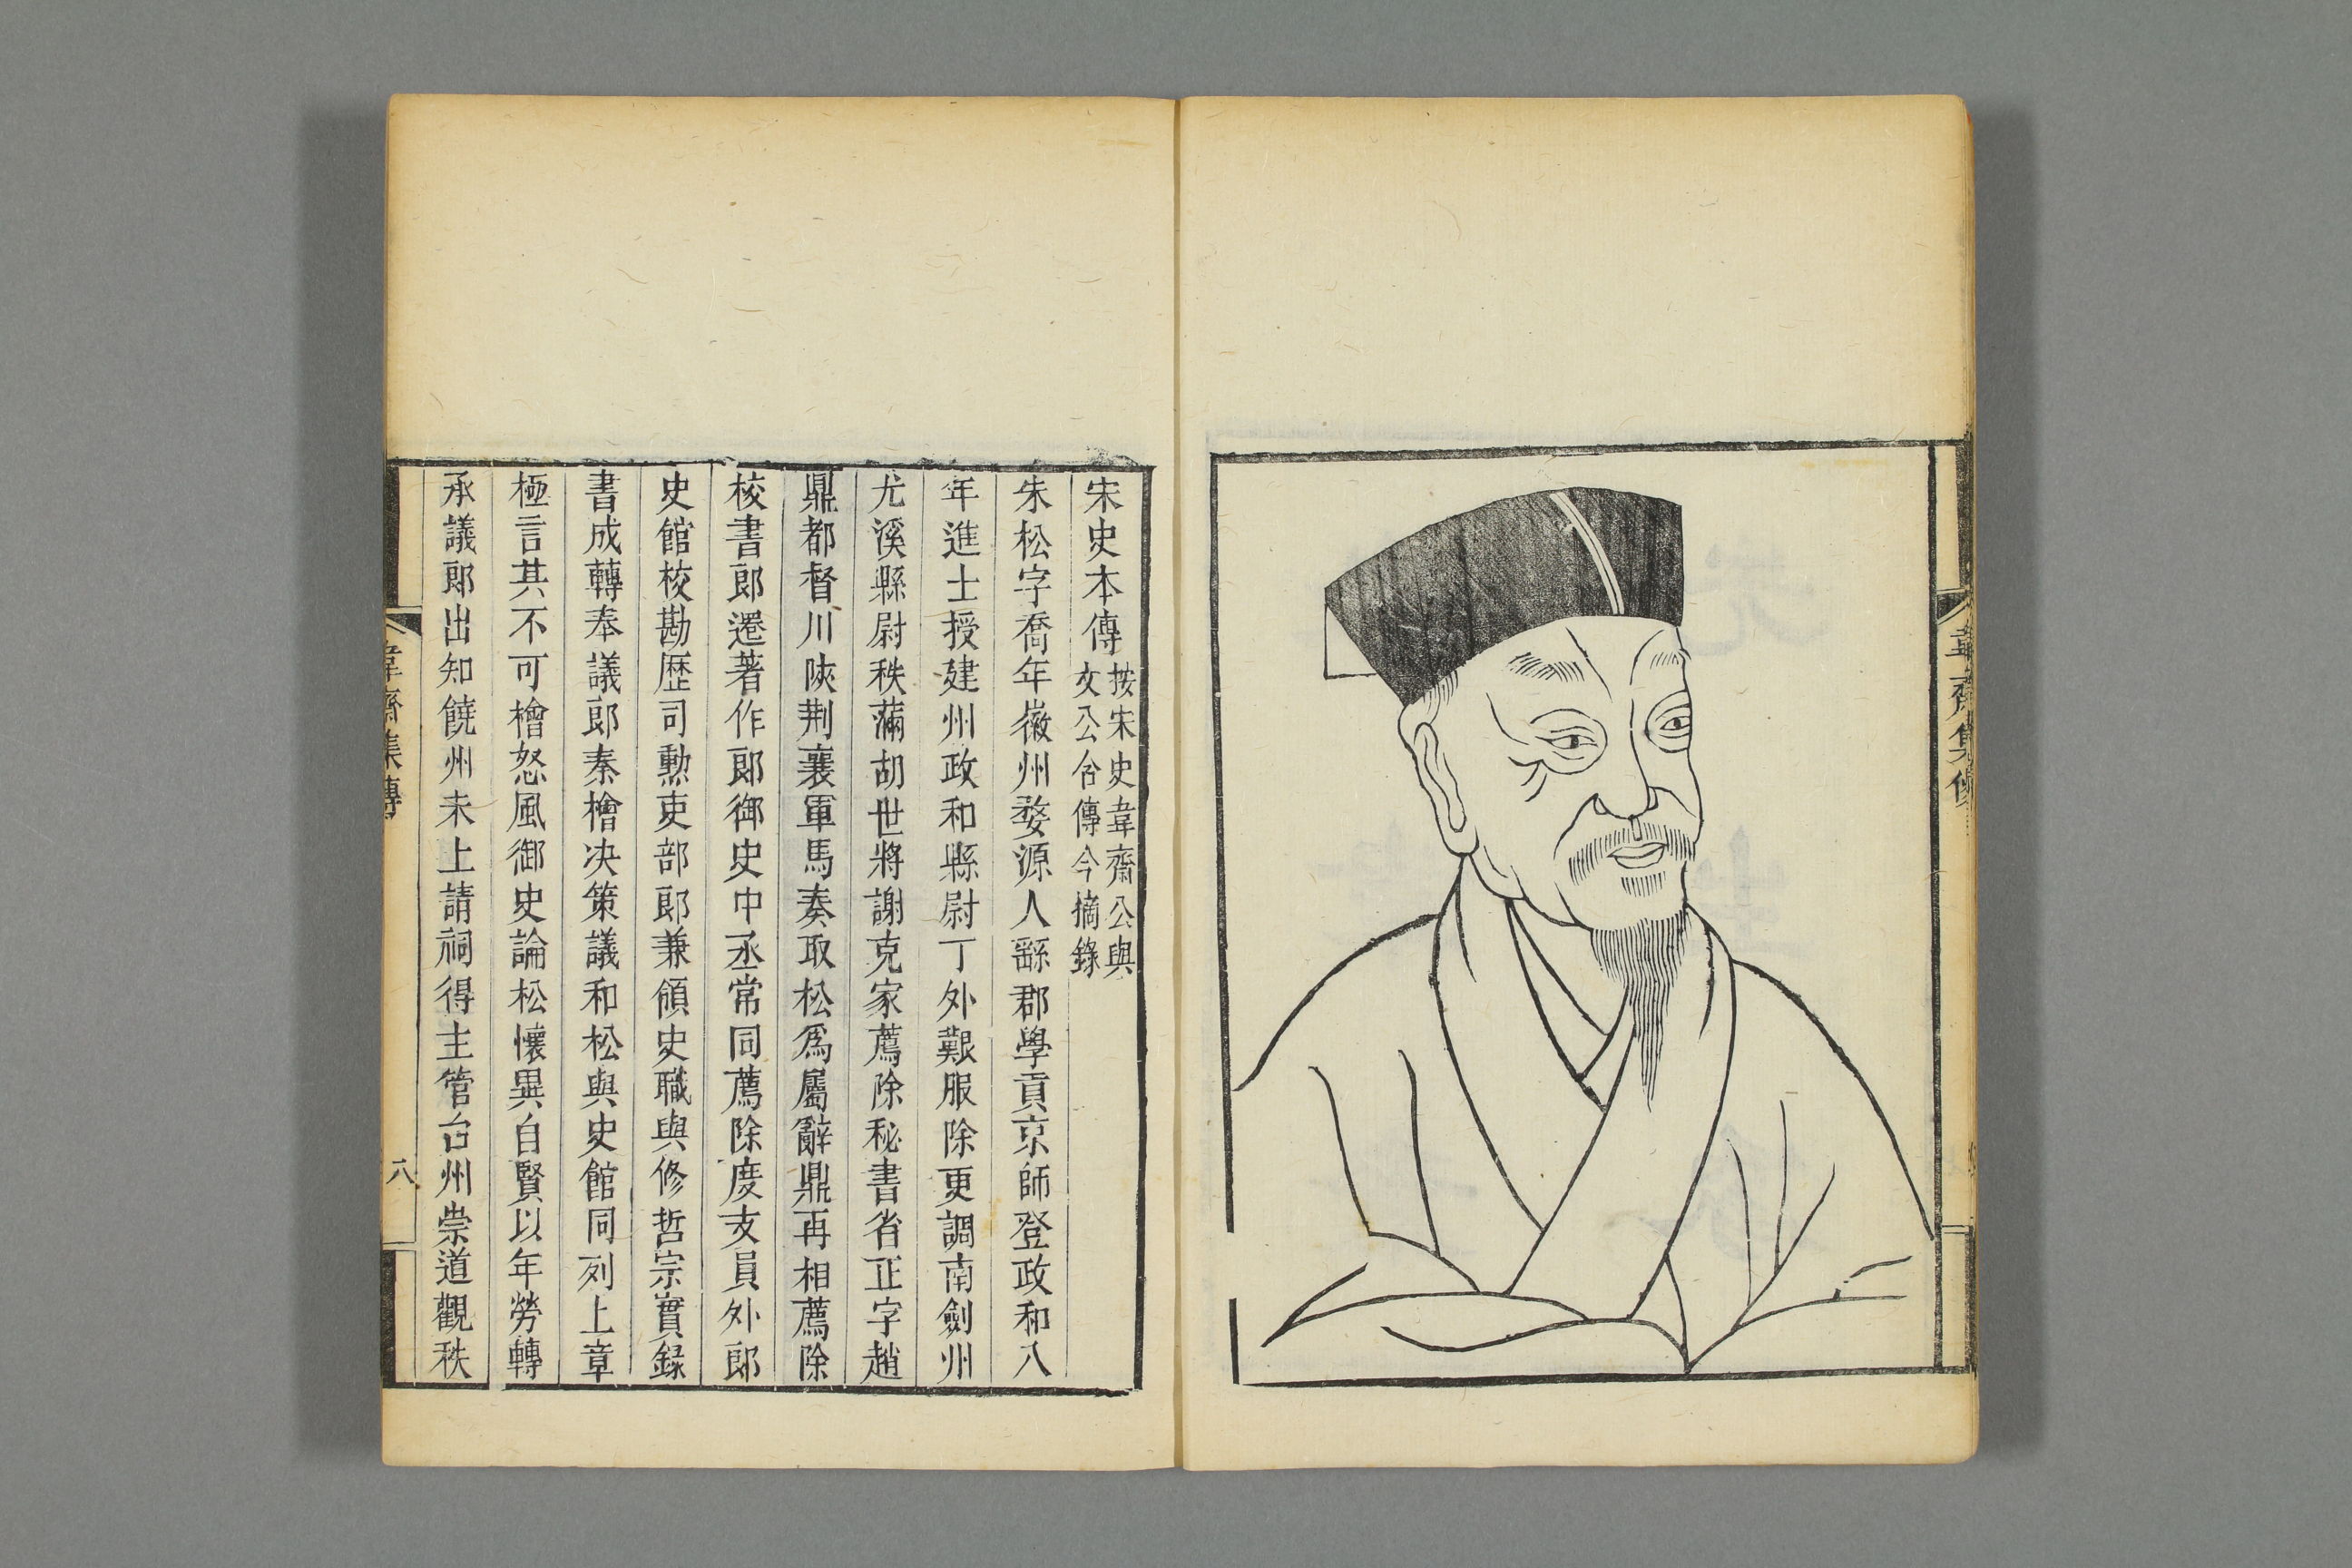 韋齋集像
宋史本傳按宋史韋齋公與
文公合傳今摘錄
朱松字喬年徽州婺源人繇郡學貢京師登政和八
年進士授建州政和縣尉丁外艱服除更調南劍州
尤溪縣尉秩滿胡世將謝克家薦除秘書省正字趙
鼎都督川陝荆襄軍馬奏取松爲屬辭鼎再相薦除
校書郎遷著作郎御史中丞常同薦除度支員外郎
史館校勘歷司勲吏部郎兼領史職與修哲宗實錄
書成轉奉議郎秦檜决策議和松與史館同列上章
極言其不可檜怒風御史論松懷異自賢以年勞轉
承議郎出知饒州未上請祠得主管台州崇道觀秩
韋齋集傳
八